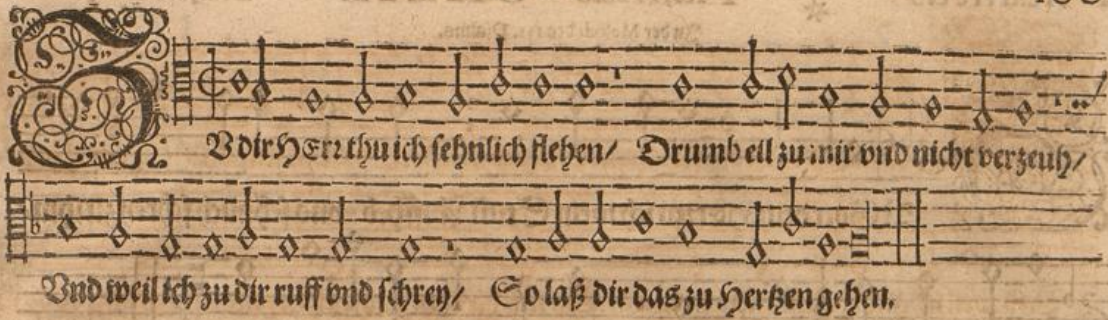 ZV dir HErr thu ich sehnlich flehen/ Drumb eil zu mir vnd nicht verzeuh/
Vnd weil ich zu dir ruff vnd schrey/ So laß dir das zu Hertzen gehen.